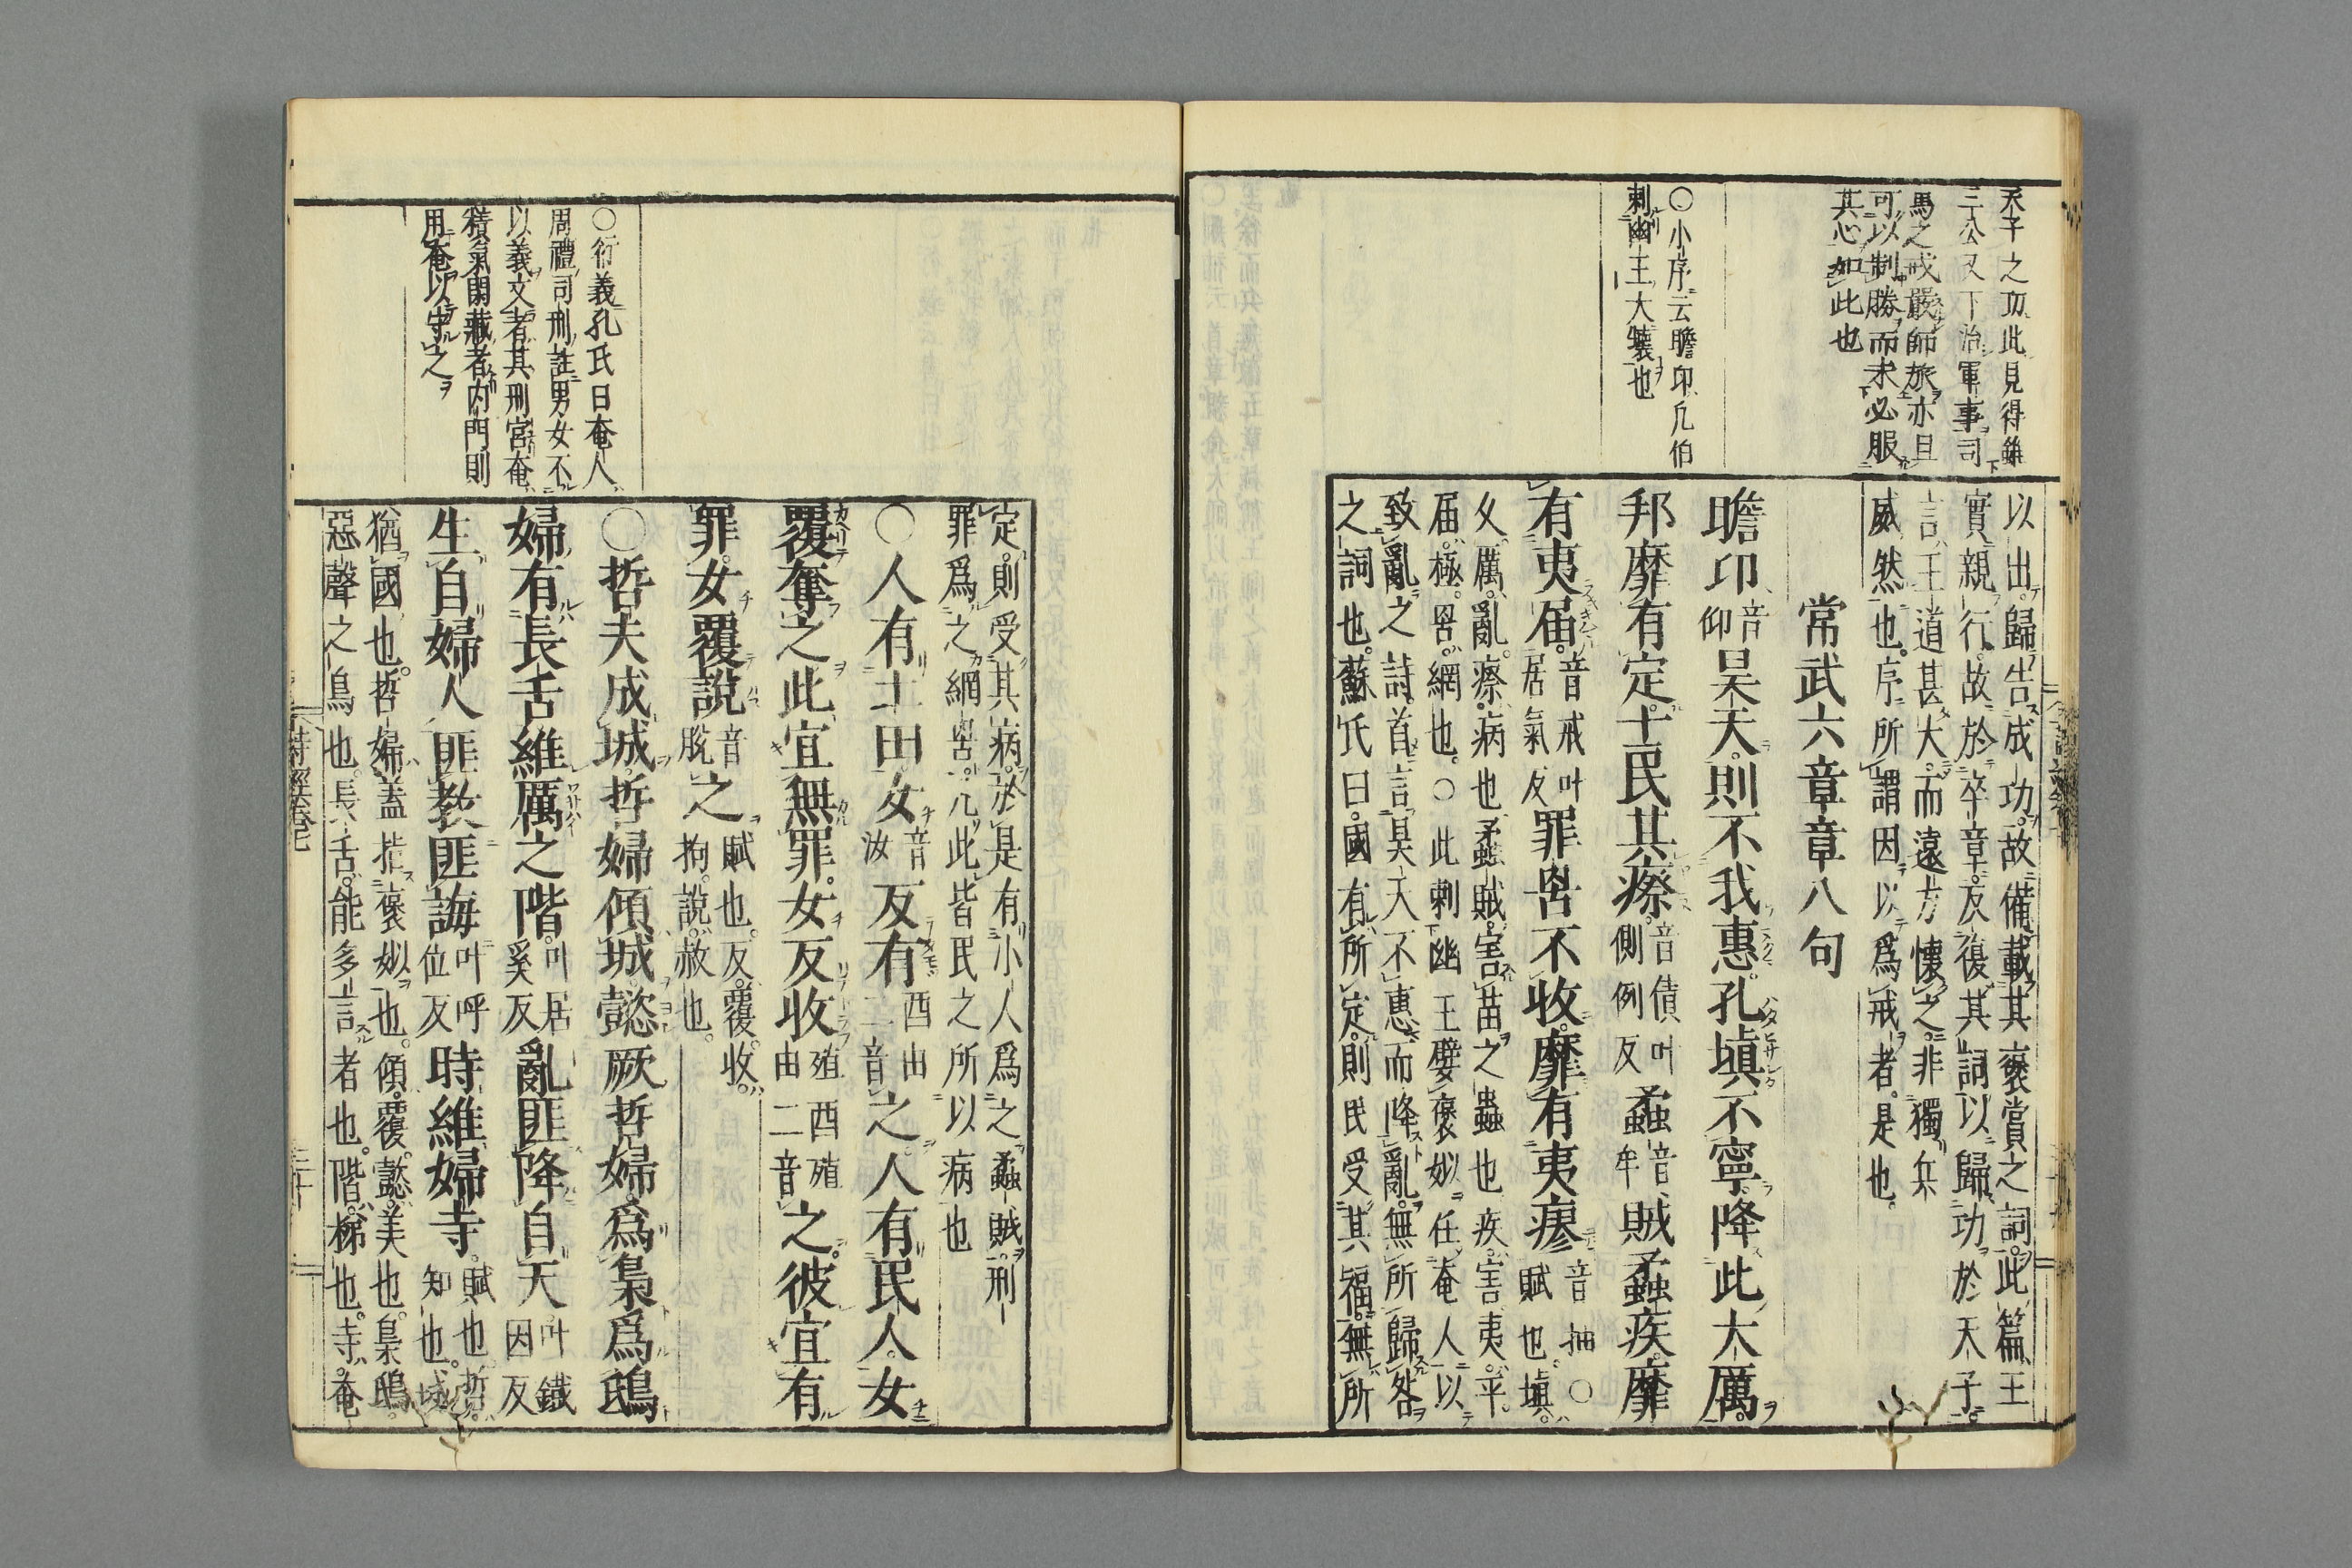 天子之功此見得雖
三公又下治軍事司
馬之戒嚴師旅亦且
可以制勝而未必服
其心如此也
○小序云瞻卬凡伯
刺幽王大壞也
以出歸告成功故備載其褒賞之詞此篇王
實親行故於卒章反復其詞以歸功於天子
言王道甚大而遠方懷之非獨兵
威然也序所謂因以爲戒者是也
常武六章章八句
瞻卬音仰昊天則不我惠孔塡不寧降此大厲
邦靡有定士民其瘵音債叶側例反蟊音牟賊蟊疾靡
有夷屆音戒叶居氣反罪罟不收靡有夷瘳音抽○賦也塡
久厲亂瘵病也蟊賊害苗之蟲也疾害夷平
屆極罟網也○此刺幽王嬖褒姒任奄人以
致亂之詩首言昊天不惠而降亂無所歸咎
之詞也蘇氏曰國有所定則民受其福無所
○衍義孔氏曰奄人
周禮司刑註男女不
以義交者其刑宮奄
積氣閉藏者内門則
用奄以守之
定則受其病於是有小人爲之蟊賊刑
罪爲之網罟凡此皆民之所以病也
○人有土田女音汝反有酉由二音之人有民人女
覆奪之此宜無罪女反收殖酉殖由二音之彼宜有
罪女覆說音脫之賦也反覆收拘說赦也
○哲夫成城哲婦傾城懿厥哲婦爲梟爲鴟
婦有長舌維厲之階叶居奚反亂匪降自天叶鐵因反
生自婦人匪敎匪誨叶呼位反時維婦寺賦也哲知也城
猶國也哲婦蓋指褒姒也傾覆懿美也梟鴟
惡聲之鳥也長舌能多言者也階梯也寺奄
詩經卷七